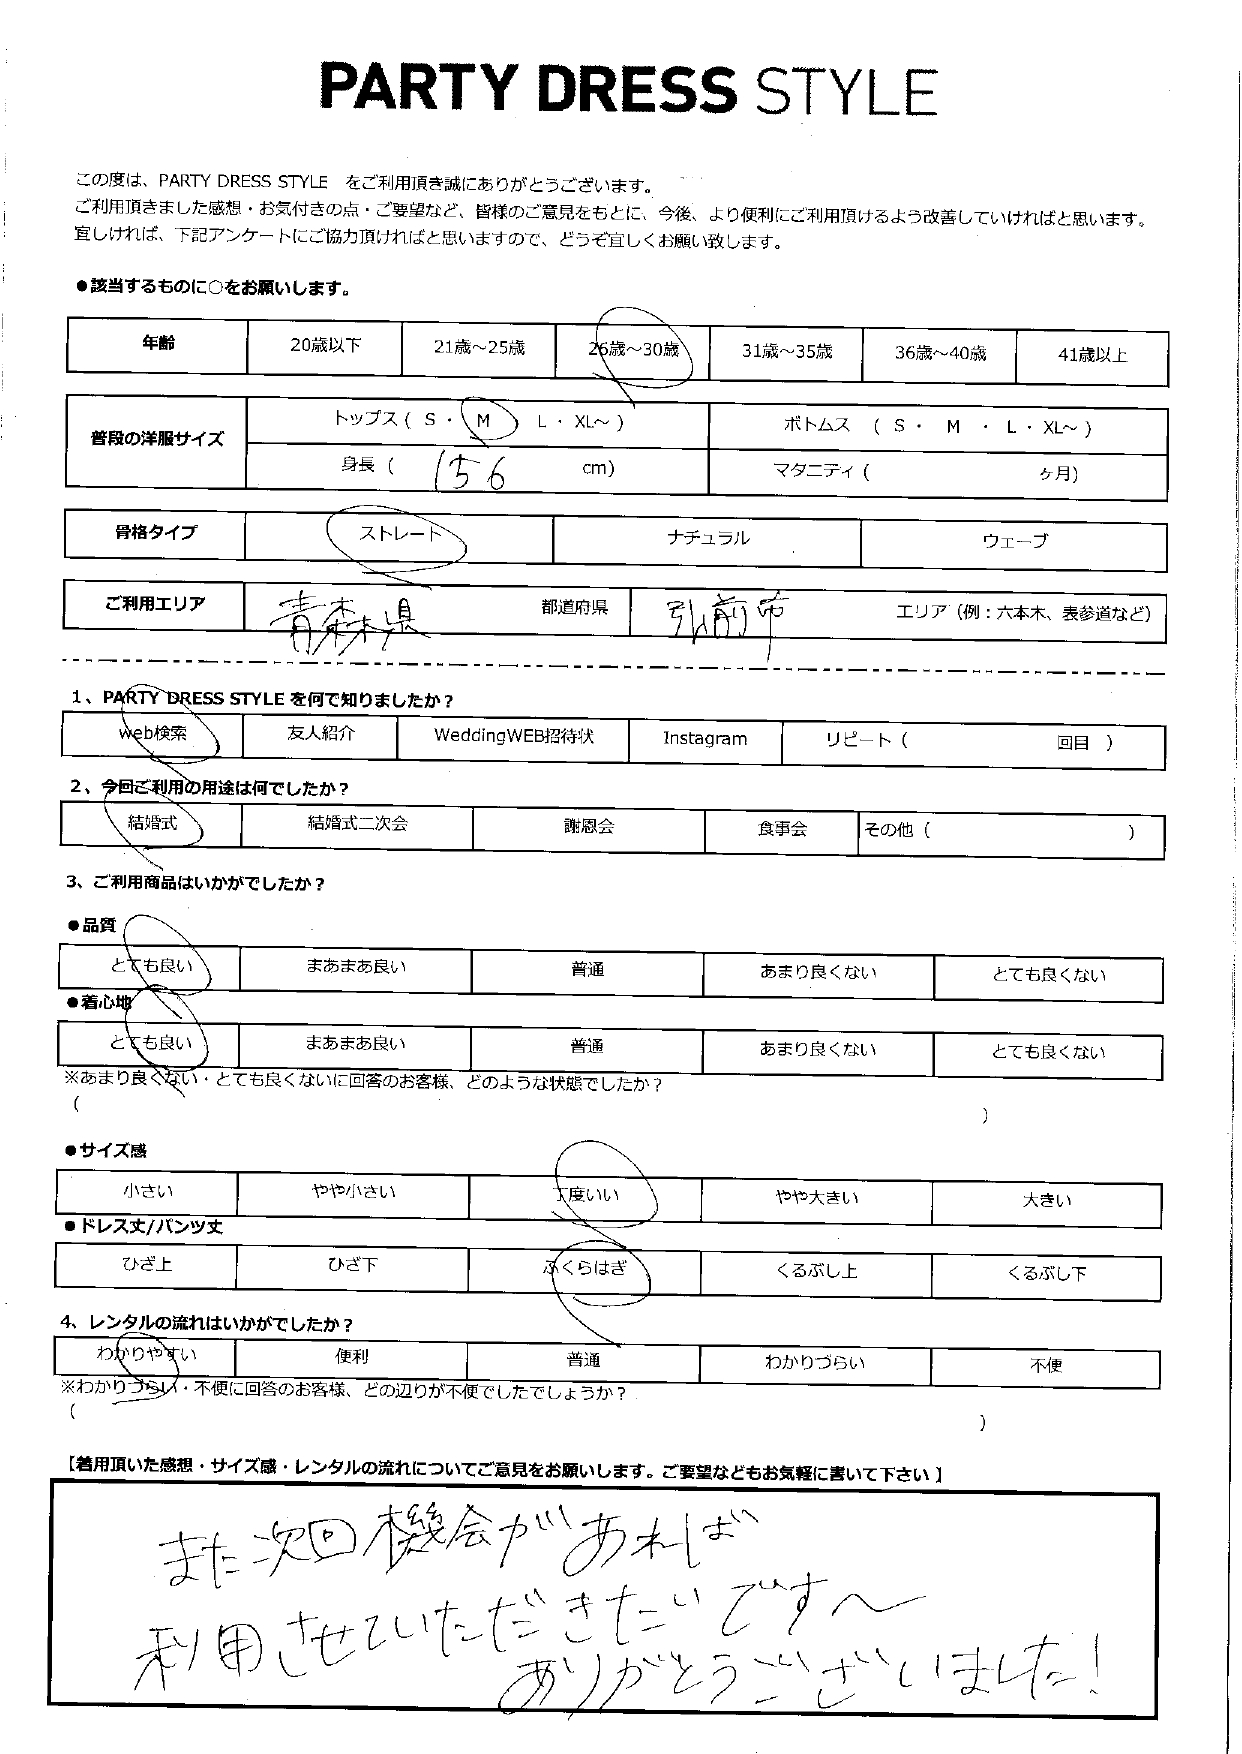 PARTY DRESS STYLE
この度は、PARTY DRESS STYLE　をご利用頂き誠にありがとうございます。
ご利用頂きました感想・お気付きの点・ご要望など、皆様のご意見をもとに、今後、より便利にご利用頂けるよう改善していければと思います。
宜しければ、下記アンケートにご協力頂ければと思いますので、どうぞ宜しくお願い致します。
●該当するものに○をお願いします。
年齢 20歳以下 21歳～25歳 26歳～30歳 31歳～35歳 36歳～40歳 41歳以上
普段の洋服サイズ トップス ( S ・ M L ・ XL～ ) ボトムス ( S ・ M ・ L ・ XL～ )
身長 ( 156 cm) マタニティ ( ヶ月)
骨格タイプ ストレート ナチュラル ウェーブ
ご利用エリア 青森県 都道府県 弘前市 エリア（例：六本木、表参道など）
1、PARTY DRESS STYLE を何で知りましたか？
web検索 友人紹介 WeddingWEB招待状 Instagram リピート ( 回目 )
2、今回ご利用の用途は何でしたか？
結婚式 結婚式二次会 謝恩会 食事会 その他 ( )
3、ご利用商品はいかがでしたか？
●品質
とても良い まあまあ良い 普通 あまり良くない とても良くない
●着心地
とても良い まあまあ良い 普通 あまり良くない とても良くない
※あまり良くない・とても良くないに回答のお客様、どのような状態でしたか？
( )
●サイズ感
小さい やや小さい 丁度いい やや大きい 大きい
●ドレス丈/パンツ丈
ひざ上 ひざ下 ふくらはぎ くるぶし上 くるぶし下
4、レンタルの流れはいかがでしたか？
わかりやすい 便利 普通 わかりづらい 不便
※わかりづらい・不便に回答のお客様、どの辺りが不便でしたでしょうか？
( )
【着用頂いた感想・サイズ感・レンタルの流れについてご意見をお願いします。ご要望などもお気軽に書いて下さい】
また次回機会があれば
利用させていただきたいです～
ありがとうございました！